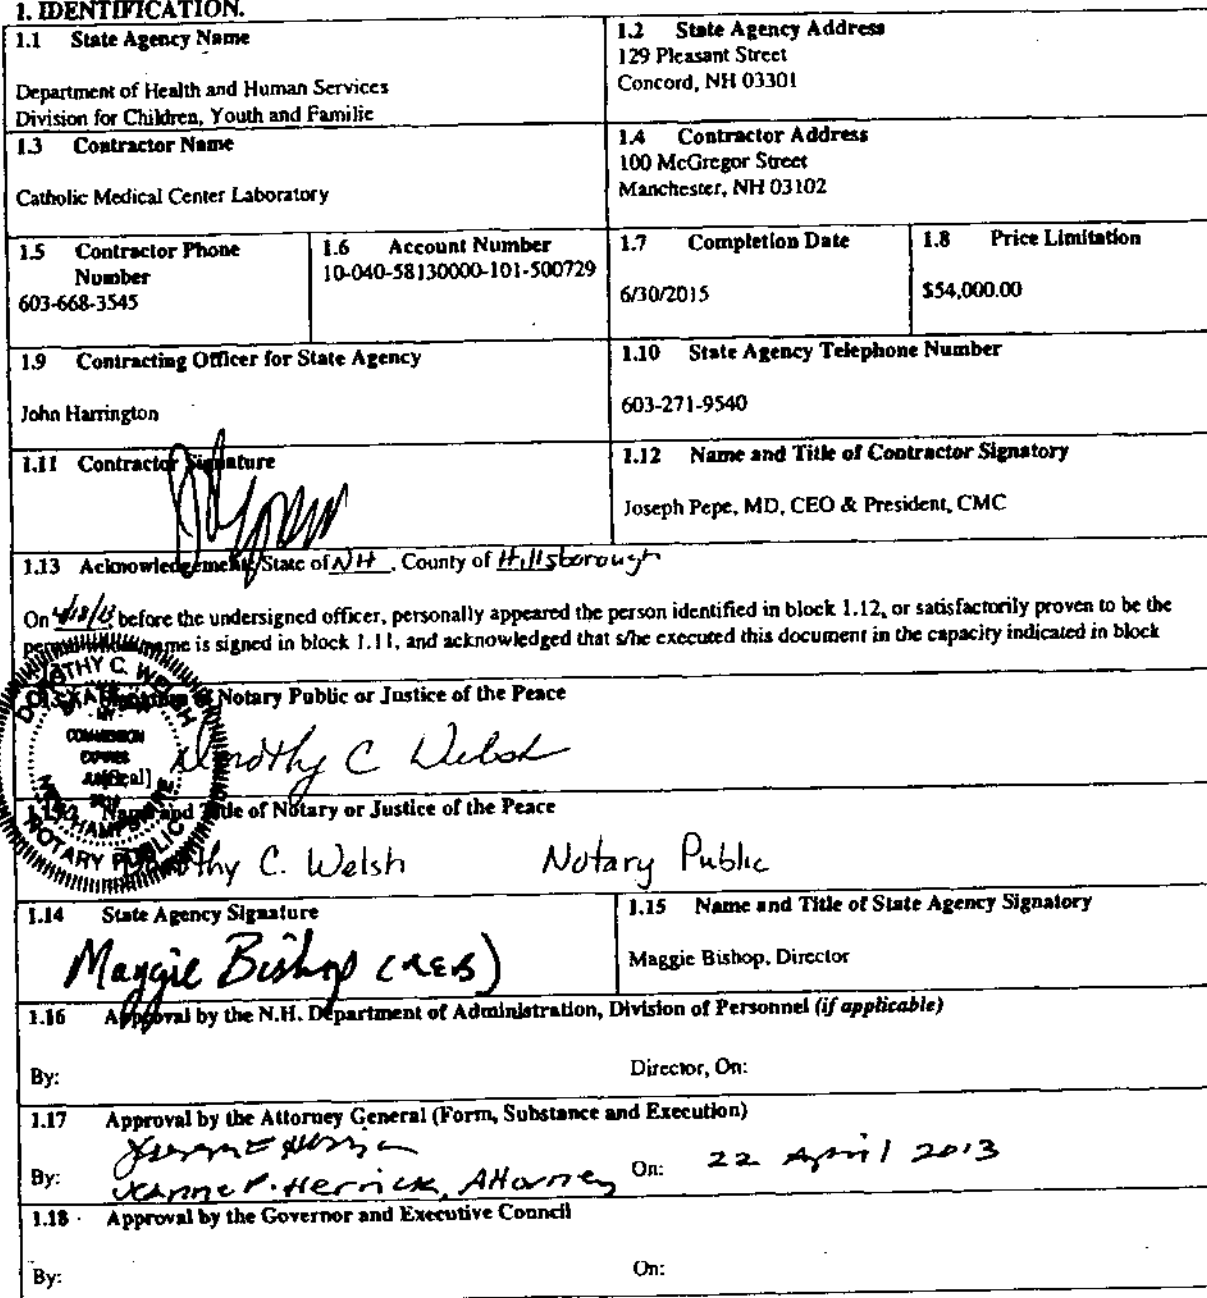 1. IDENTIFICATION.
1.1 State Agency Name
Department of Health and Human Services
Division for Children, Youth and Familie
1.2 State Agency Address
129 Pleasant Street
Concord, NH 03301
1.3 Contractor Name
Catholic Medical Center Laboratory
1.4 Contractor Address
100 McGregor Street
Manchester, NH 03102
1.5 Contractor Phone
Number
603-668-3545
1.6 Account Number
10-040-58130000-101-500729
1.7 Completion Date
6/30/2015
1.8 Price Limitation
$54,000.00
1.9 Contracting Officer for State Agency
John Harrington
1.10 State Agency Telephone Number
603-271-9540
1.11 Contractor Signature
1.12 Name and Title of Contractor Signatory
Joseph Pepe, MD, CEO & President, CMC
1.13 Acknowledgement: State of NH, County of Hillsborough
On before the undersigned officer, personally appeared the person identified in block 1.12, or satisfactorily proven to be the
name is signed in block 1.11, and acknowledged that s/he executed this document in the capacity indicated in block
Notary Public or Justice of the Peace
DOROTHY C. WELSH
MY
COMMISSION
EXPIRES
[Seal]
NEW HAMPSHIRE
NOTARY PUBLIC
Dorothy C Welsh
Name and Title of Notary or Justice of the Peace
Dorothy C. Welsh Notary Public
1.14 State Agency Signature
Maggie Bishop (REB)
1.15 Name and Title of State Agency Signatory
Maggie Bishop, Director
1.16 Approval by the N.H. Department of Administration, Division of Personnel (if applicable)
By: Director, On:
1.17 Approval by the Attorney General (Form, Substance and Execution)
By: Jeanne P. Herrick, Attorney On: 22 April 2013
1.18 Approval by the Governor and Executive Council
By: On: